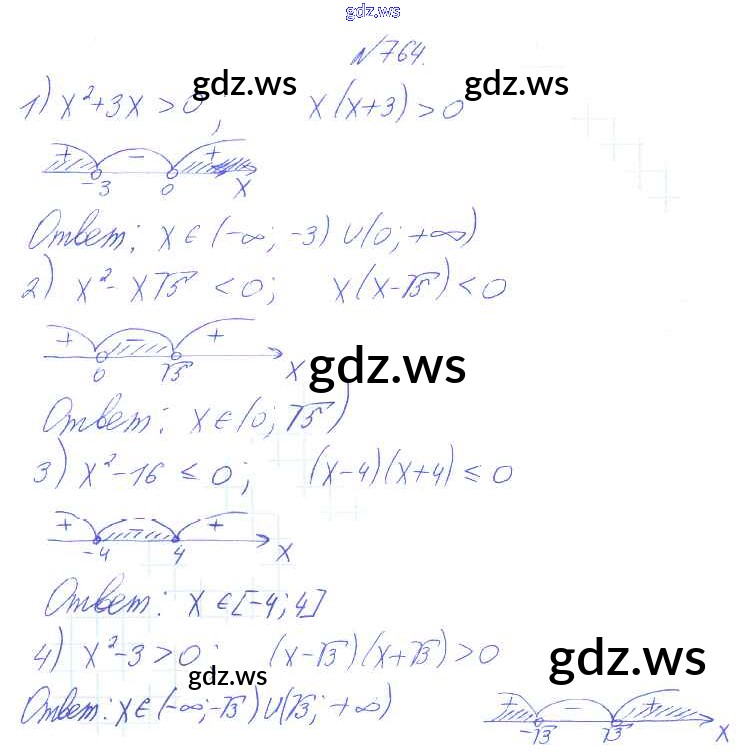 gdz.ws
№764.
gdz.ws gdz.ws
1) x²+3x>0, x(x+3)>0
+ − +
-3 0 x
Ответ: x∈(-∞; -3)∪(0; +∞)
2) x²-x√5 <0; x(x-√5)<0
+ − +
0 √5 x
gdz.ws
Ответ: x∈(0; √5)
3) x²-16 ≤ 0; (x-4)(x+4) ≤ 0
+ − +
-4 4 x
Ответ: x∈[-4; 4]
4) x²-3>0; (x-√3)(x+√3)>0
gdz.ws gdz.ws
Ответ: x∈(-∞;-√3)∪(√3; +∞)
+ − +
-√3 √3 x